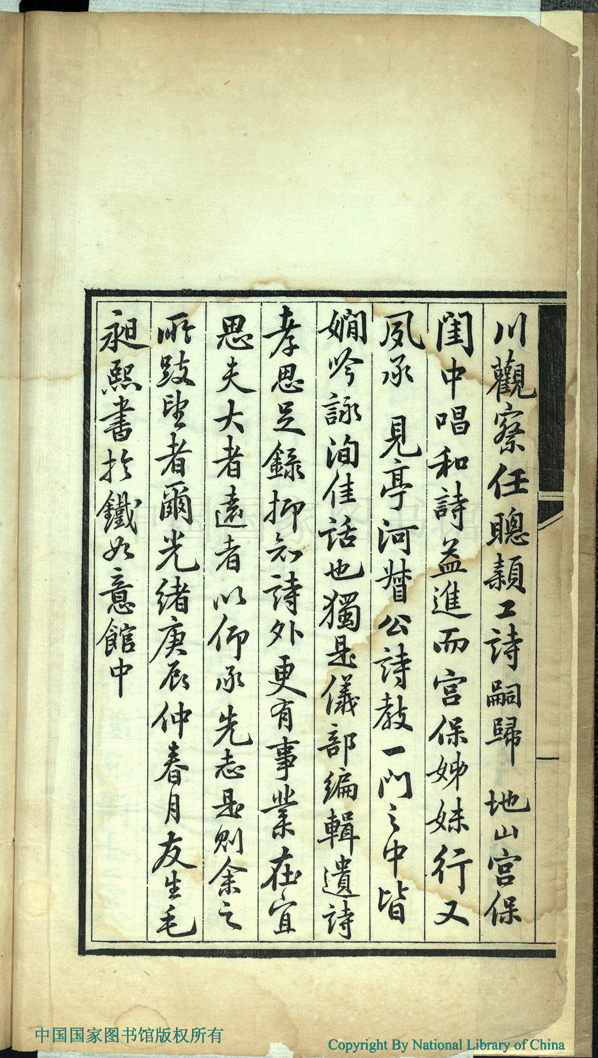 川觀察任聰頴工詩嗣歸 地山宮保
閨中唱和詩益進而宮保姊妹行又
夙承 見亭河督公詩教一門之中皆
嫺吟詠洵佳話也獨是儀部編輯遺詩
孝思足錄抑知詩外更有事業在宜
思夫大者遠者以仰承先志是則余之
所跂望者爾光緒庚辰仲春月友生毛
昶熙書於鐵如意館中
中国国家图书馆版权所有
Copyright By National Library of China